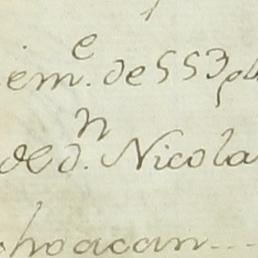 iem.e de 553 p
de d.n Nicola
choacan---